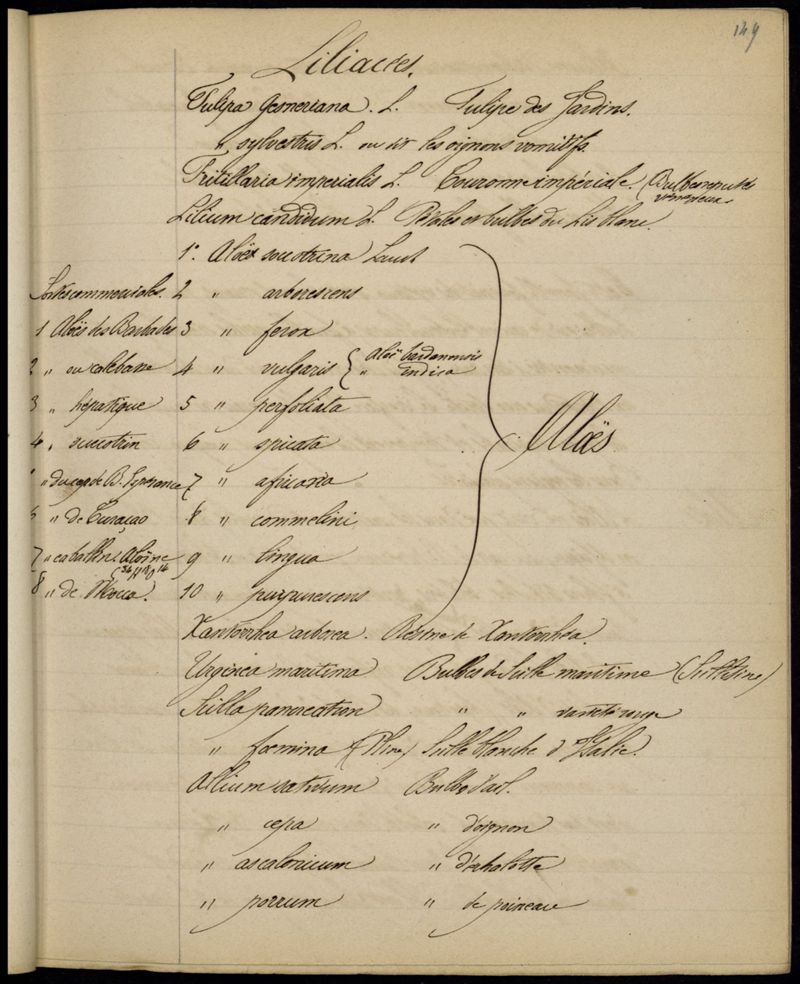 149
Liliacées.
Tulipa Gesneriana. L. Tulipe des Jardins.
" sylvestris L. ou dit les oignons vomitifs
Fritillaria imperialis L. Couronne impériale. (Bulbes réputés vénéneux.
Lilium candidum L. Pétales et bulbes du Lis blanc.
1° Aloës socotrina Lamk
Sortes commerciales. 2 " arborescens
1 Aloës des Barbades 3 " ferox
2 " ou calebasse 4 " vulgaris { Aloë barbadensis
" indica
3 " hépatique 5 " perfoliata
4 " succotrin 6 " spicata
" du cap de B. Espérance 7 " africana
6 " de Curaçao 8 " commelini
7 " caballin. Aloïne 9 " lingua
8 " de Mocca. 10 " purpurescens
Aloës
Xantorrhea arborea. Résine de Xantorrhéa.
Urginea maritima Bulbes de Scille maritime (Scillitine)
Scilla pancration " " variété rouge
" fœmina (Pline) Scille blanche d'Italie.
Allium sativum Bulbe d'ail.
" cepa " d'oignon
" ascalonicum " d'échalotte
" porrum " de poireau